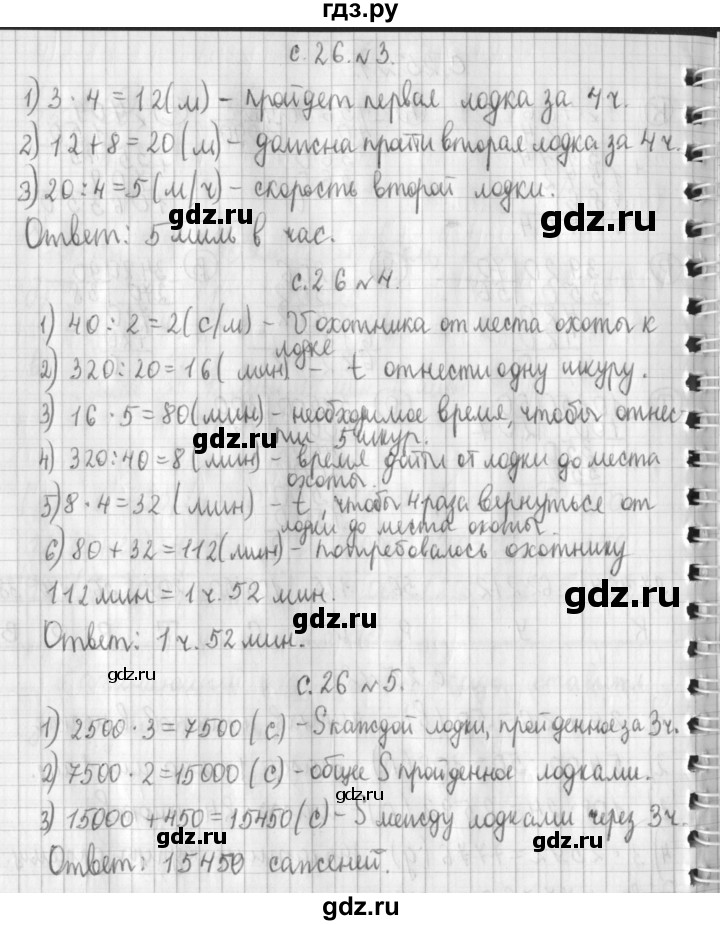 гдз.ру
с. 26. № 3.
1) 3 · 4 = 12 (м) – пройдет первая лодка за 4 ч.
2) 12 + 8 = 20 (м) – должна пройти вторая лодка за 4 ч.
3) 20 : 4 = 5 (м/ч) – скорость второй лодки.
gdz.ru
gdz.ru
Ответ: 5 миль в час.
с. 26 № 4.
1) 40 : 2 = 2 (с/м) – V охотника от места охоты к
лодке
2) 320 : 20 = 16 (мин) – t отнести одну шкуру.
gdz.ru
3) 16 · 5 = 80 (мин) – необходимое время, чтобы отнес-
ти 5 шкур.
gdz.ru
4) 320 : 40 = 8 (мин) – время дойти от лодки до места
охоты.
5) 8 · 4 = 32 (мин) – t, чтобы 4 раза вернуться от
лодки до места охоты.
6) 80 + 32 = 112 (мин) – потребовалось охотнику
112 мин = 1 ч. 52 мин.
gdz.ru
gdz.ru
Ответ: 1 ч. 52 мин.
gdz.ru
с. 26 № 5.
1) 2500 · 3 = 7500 (с) – S каждой лодки, пройденное за 3 ч.
2) 7500 · 2 = 15000 (с) – общее S пройденное лодками.
gdz.ru
3) 15000 + 450 = 15450 (с) – S между лодками через 3 ч.
gdz.ru
Ответ: 15450 саженей.
gdz.ru
gdz.ru